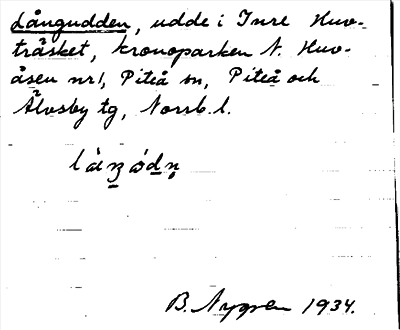 Långudden, udde i Inre Huv-
träsket, kronoparken N. Huv-
åsen nr 1, Piteå sn, Piteå och
Älvsby tg, Norrb. l.
B. Nygren 1934.